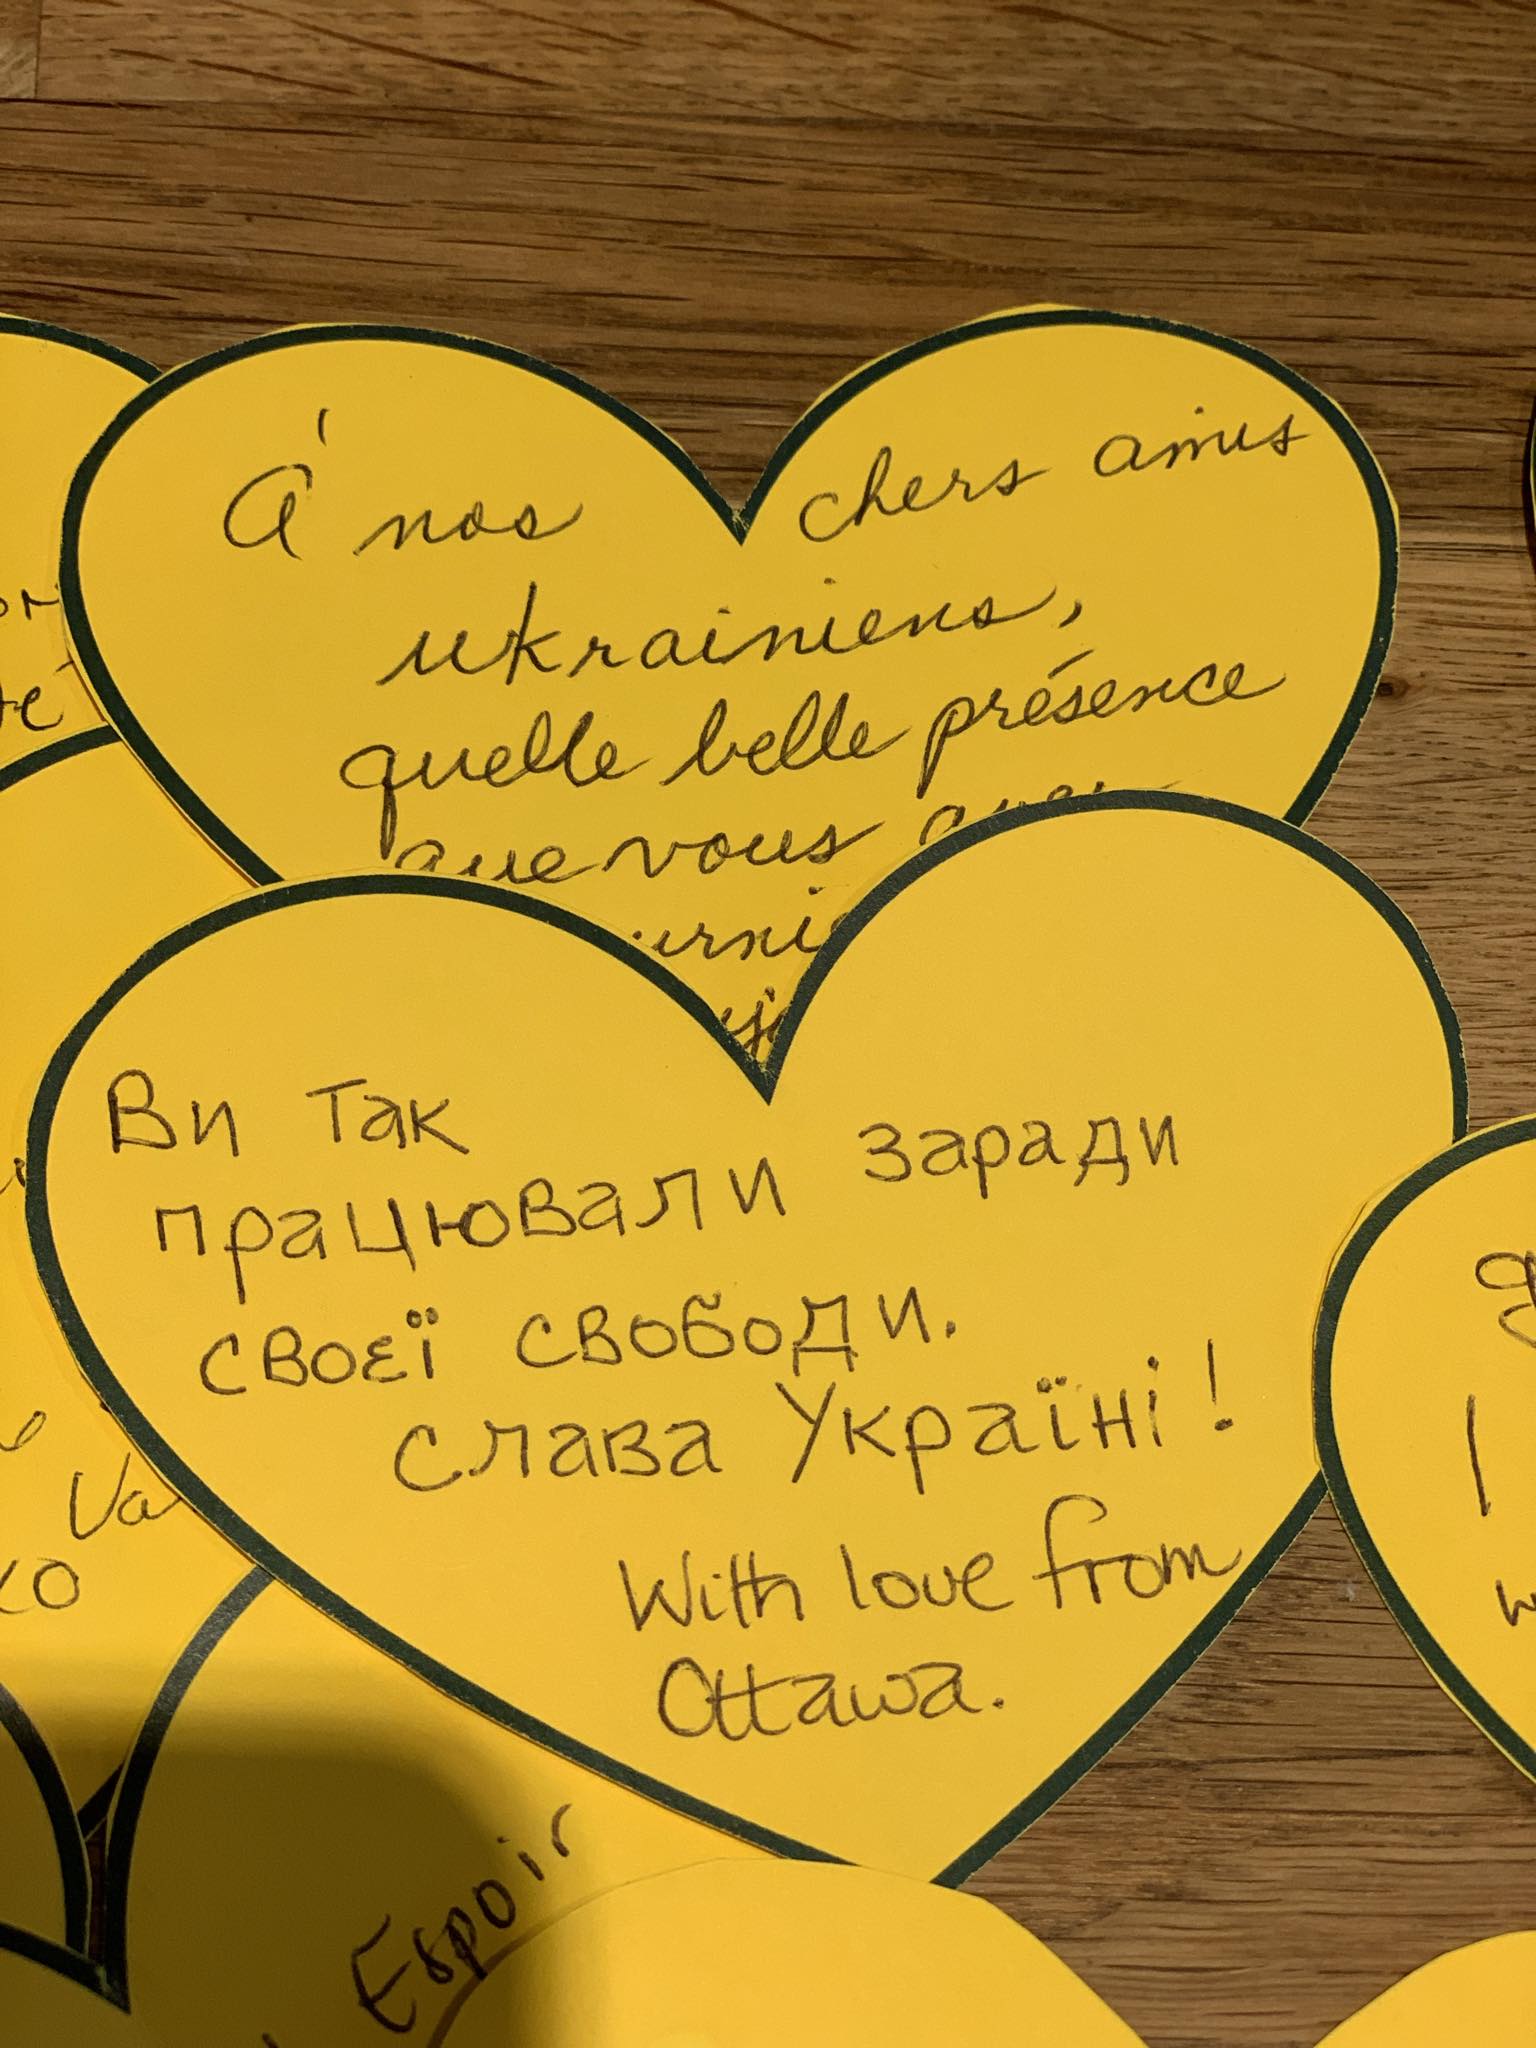 Á nos chers amis
ukrainiens,
quelle belle présence
que vous
Ви так
працювали заради
своєї свободи.
слава Україні!
With love from
Ottawa.
Espoir